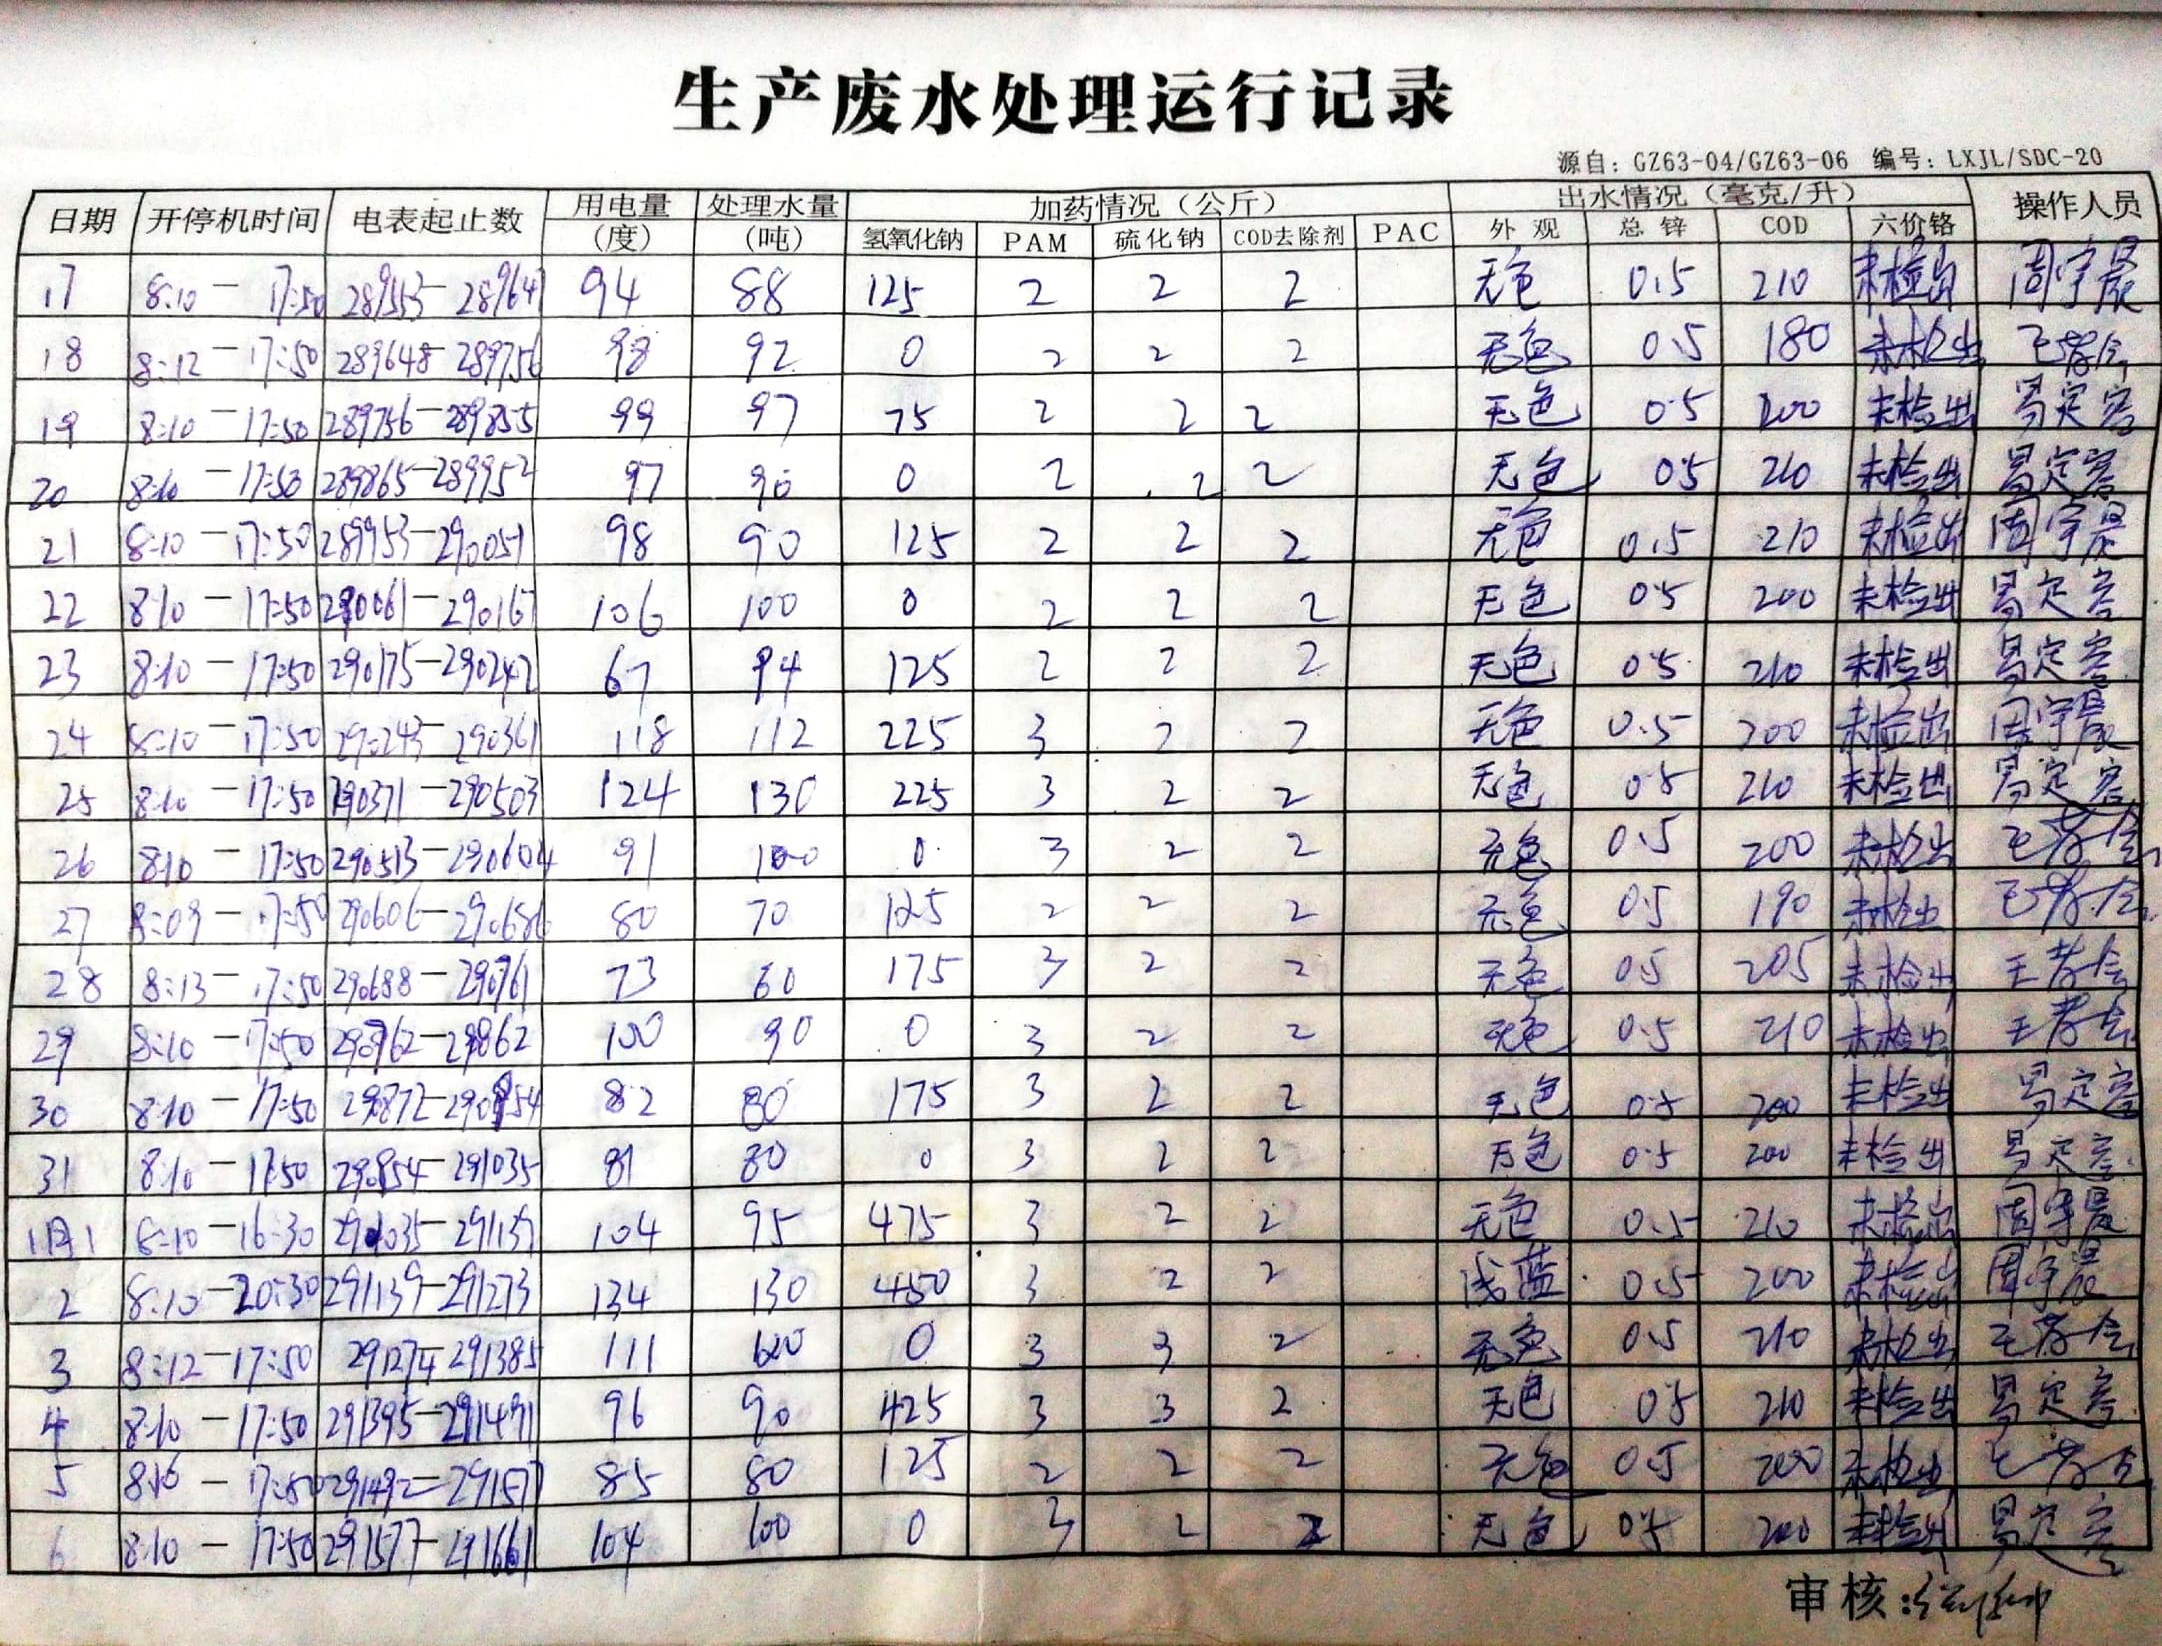 生产废水处理运行记录
源自：GZ63-04/GZ63-06 编号：LXJL/SDC-20
日期 开停机时间 电表起止数 用电量（度） 处理水量（吨） 加药情况（公斤） 出水情况（毫克/升） 操作人员
氢氧化钠 PAM 硫化钠 COD去除剂 PAC 外观 总锌 COD 六价铬
17 8:10-17:50 289553-289647 94 88 125 2 2 2 无色 0.5 210 未检出 周宇晨
18 8:12-17:50 289648-289756 98 92 0 2 2 2 无色 0.5 180 未检出
19 8:10-17:50 289756-289855 99 97 75 2 2 2 无色 0.5 200 未检出 易定容
20 8:10-17:50 289865-289952 97 90 0 2 2 2 无色 0.5 210 未检出 易定容
21 8:10-17:50 289953-290051 98 90 125 2 2 2 无色 0.5 210 未检出 周宇晨
22 8:10-17:50 290061-290167 106 100 0 2 2 2 无色 0.5 200 未检出 易定容
23 8:10-17:50 290175-290242 67 94 125 2 2 2 无色 0.5 210 未检出 易定容
24 8:10-17:50 290243-290361 118 112 225 3 2 2 无色 0.5 200 未检出 周宇晨
25 8:10-17:50 290371-290503 124 130 225 3 2 2 无色 0.5 210 未检出 易定容
26 8:10-17:50 290513-290604 91 100 0 3 2 2 无色 0.5 200 未检出
27 8:09-17:50 290606-290686 80 70 125 2 2 2 无色 0.5 190 未检出
28 8:13-17:50 290688-290761 73 60 175 3 2 2 无色 0.5 205 未检出
29 8:10-17:50 290762-29862 100 90 0 3 2 2 无色 0.5 210 未检出
30 8:10-17:50 29872-290954 82 80 175 3 2 2 无色 0.5 200 未检出 易定容
31 8:10-17:50 290954-291035 81 80 0 3 2 2 无色 0.5 200 未检出 易定容
1月1 8:10-16:30 291035-291139 104 95 475 3 2 2 无色 0.5 210 未检出 周宇晨
2 8:10-20:30 291139-291273 134 130 450 3 2 2 浅蓝 0.5 200 未检出 周宇晨
3 8:12-17:50 291274-291385 111 0 3 3 2 无色 0.5 210 未检出
4 8:10-17:50 291395-291491 96 90 425 3 3 2 无色 0.5 210 未检出 易定容
5 8:16-17:50 291492-291577 85 80 125 2 2 2 无色 0.5 200 未检出
6 8:10-17:50 291577-291661 104 100 0 3 2 2 无色 0.5 200 未检出 易定容
审核：